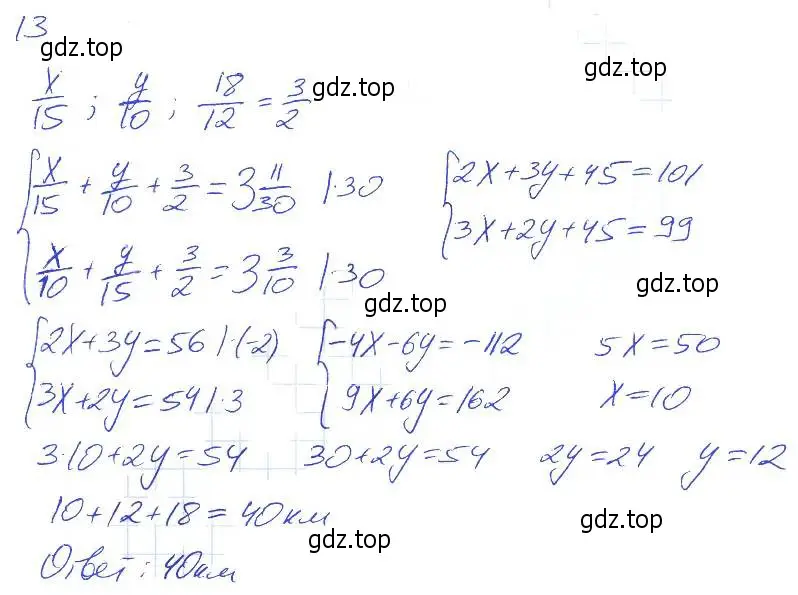 13
gdz.top
gdz.top
x/15 ; y/10 ; 18/12 = 3/2
gdz.top
{ x/15 + y/10 + 3/2 = 3 11/30 |·30
{ x/10 + y/15 + 3/2 = 3 3/10 |·30
gdz.top
{ 2x+3y+45=101
{ 3x+2y+45=99
gdz.top
gdz.top
{ 2x+3y=56 |·(-2)
{ 3x+2y=54 |·3
{ -4x-6y=-112
{ 9x+6y=162
5x=50
x=10
3·10+2y=54 30+2y=54 2y=24 y=12
10+12+18=40км
gdz.top
gdz.top
Ответ: 40км